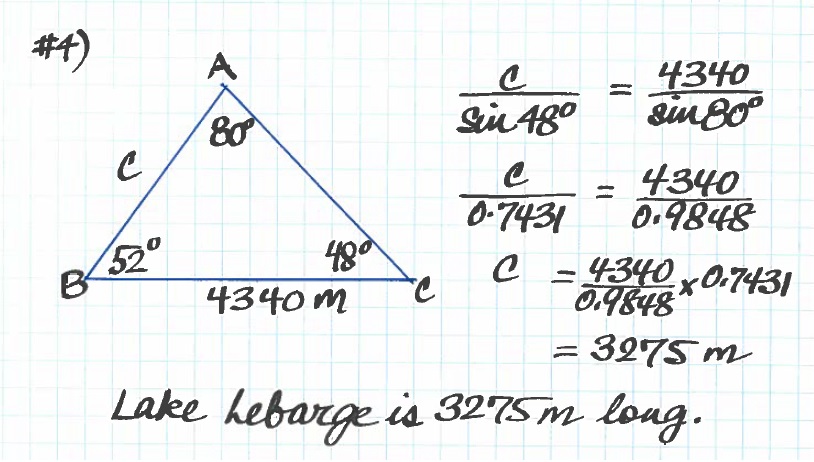 #4)
A
80°
c
B 52° 48° C
4340 m
c / sin 48° = 4340 / sin 80°
c / 0.7431 = 4340 / 0.9848
c = 4340 / 0.9848 x 0.7431
= 3275 m
Lake Lebarge is 3275 m long.